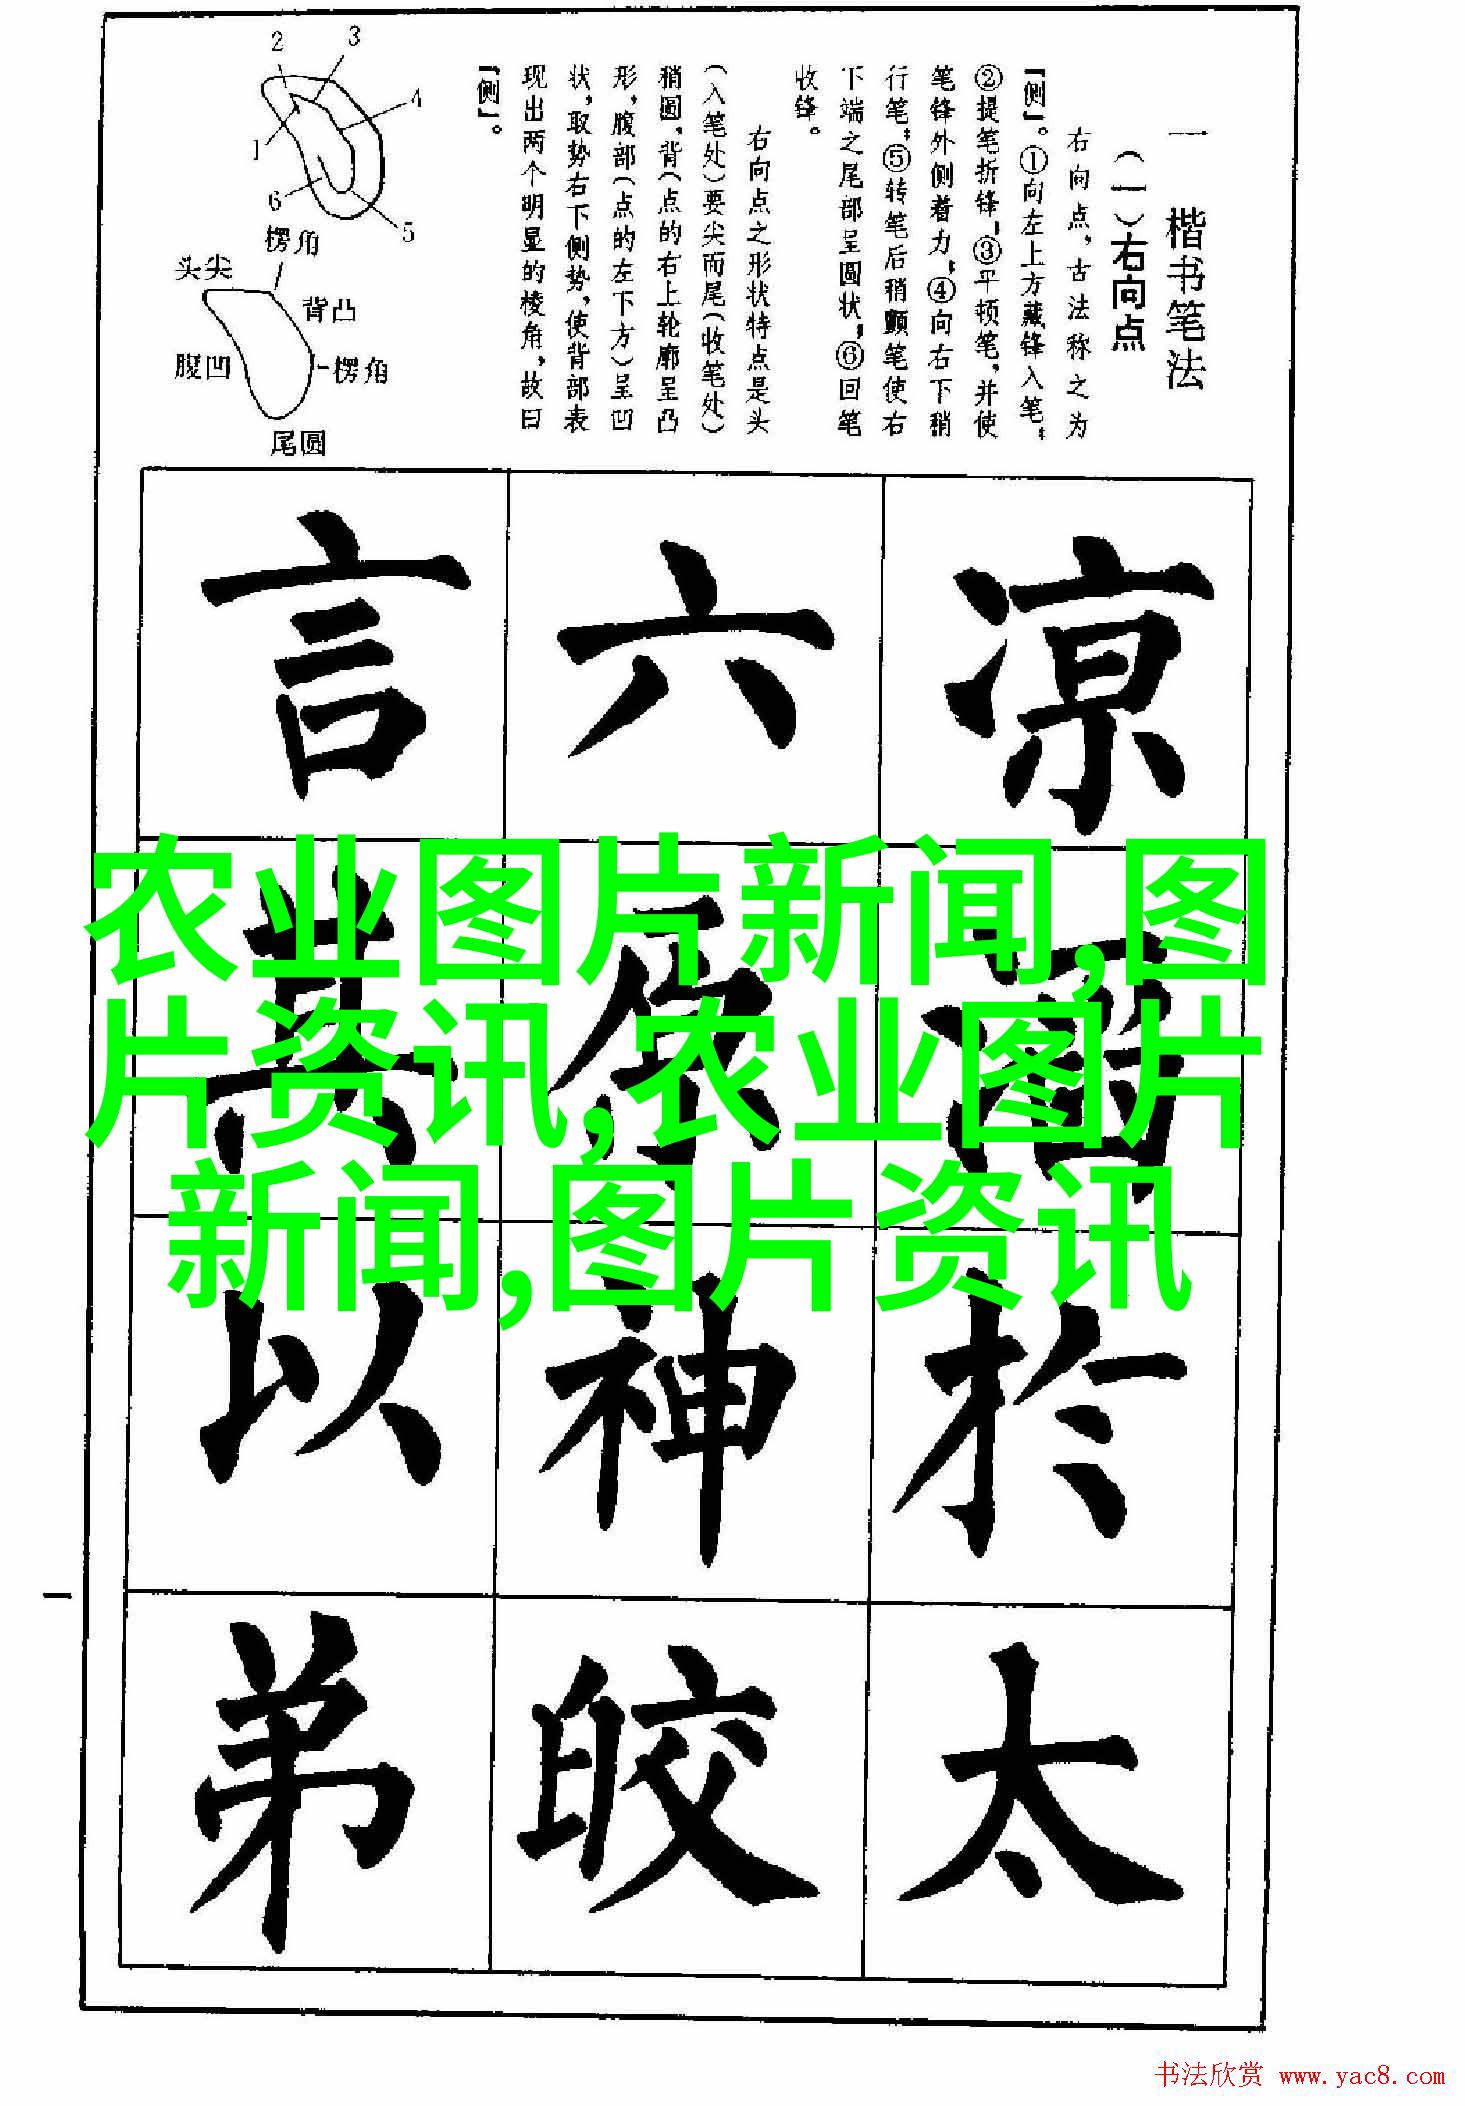 一 楷书笔法
（一）右向点
右向点，古法称之为
「侧」。①向左上方藏锋入笔；
②提笔折锋；③平顿笔，并使
笔锋外侧着力；④向右下稍
行笔；⑤转笔后稍颤笔使右
下端之尾部呈圆状；⑥回笔
收锋。
右向点之形状特点是头
（入笔处）要尖而尾（收笔处）
稍圆，背（点的右上轮廓呈凸
形，腹部（点的左下方）呈凹
状，取势右下侧势，使背部表
现出两个明显的棱角，故曰
「侧」。
2
3
4
1
6
5
楞角
头尖
背凸
腹凹
楞角
尾圆
言 六 凉
农业图片新闻,图
片资讯,农业图片
新闻,图片资讯
以 神 於
弟 皎 太
一
书法欣赏 www.yac8.com